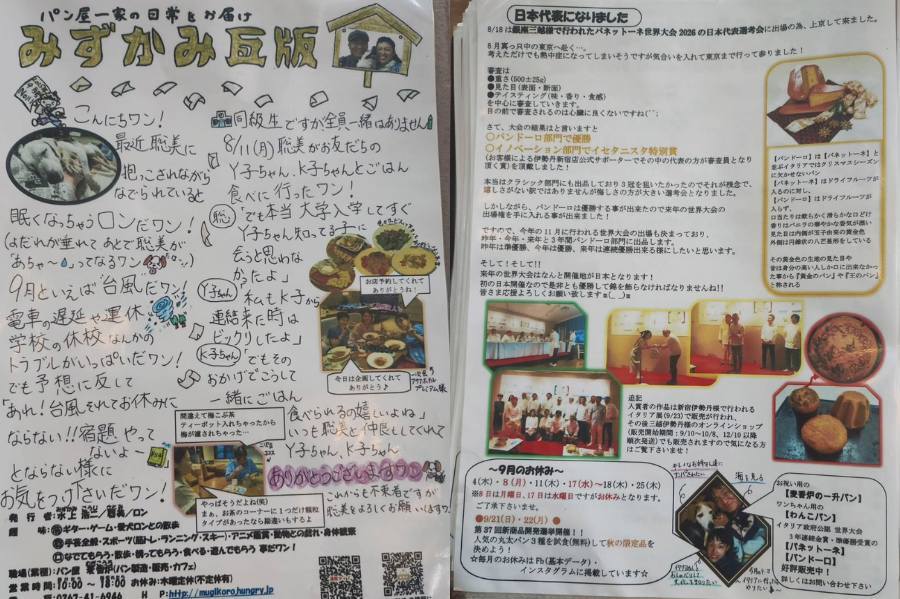 パン屋一家の日常をお届け
みずかみ瓦版
こんにちワン!
最近聡美に
抱っこされながら
なでられていると
眠くなっちゃうロンだワン!
(よだれが垂れてあとで聡美が
「あちゃ〜」ってなるワン
9月といえば台風だワン!
電車の遅延や運休
学校の休校なんかの
トラブルがいっぱいだワン!
でも予想に反して
「あれ!台風それてお休みに
ならない!!宿題やって
ないよ〜
とならない様に
お気をつけ下さいだワン!
同級生ですが全員一緒はありません
8/11(月)聡美がお友だちの
Y子ちゃん、K子ちゃんとごはん
食べに行ったワン!
聡「でも本当大学入学してすぐ
Y子ちゃん知ってる子に
会うと思わな
かったよ」
Y子ちゃん「私もK子から
連絡来た時は
ビックリしたよ」
K子ちゃん「でもその
おかげでこうして
一緒にごはん
食べられるの嬉しいよね」
いつも聡美と仲良しでいてくれて
Y子ちゃん、K子ちゃん
ありがとうございますワン
これからも不束者ですが
聡美をよろしくお願いしますワン
お店予約してくれて
ありがとうね!
今日は企画してくれて
ありがとう♪
間違えて梅こぶ茶
ティーポット入れちゃったから
梅が濾されちゃった…
やっぱそうだよね(笑)
まぁ、お茶のコーナーに1つだけ顆粒
タイプがあったなら勘違いもするよ
ギター・ゲーム・愛犬ロンとの散歩
なでてもらう・散歩・構ってもらう・食べる・遊んでもらう 事だワン!
営業時間 10:00 〜 18:00 お休み:木曜定休(不定休有)
0267-41-6966
日本代表になりました
8/18は銀座三越様で行われたパネットーネ世界大会2026の日本代表選考会に出場の為、上京して来ました。
8月真っ只中の東京へ赴く…。
考えただけでも熱中症になってしまいそうですが気合いを入れて東京まで行って参りました!
審査は
●重さ(500±25g)
●見た目(表面・断面)
●テイスティング(味・香り・食感)
を中心に審査していきます。
目の前で審査されるのは心臓に良くないですね
さて、大会の結果はと言いますと
○パンドーロ部門で優勝
○イノベーション部門でイセタニスタ特別賞
(お客様による伊勢丹新宿店公式サポーターでその中の代表の方が審査員となり
頂く賞)を頂戴しました!
本当はクラシック部門にも出品しており3冠を狙いたかったのでそれが残念で、
嬉しさがない訳ではありませんが悔しさの方が大きい選考会となりました。
しかしながら、パンドーロは優勝する事が出来たので来年の世界大会の
出場権を手に入れる事が出来ました!
ですので、今年の11月に行われる世界大会の出場も決まっており、
昨年・今年・来年と3年間パンドーロ部門に出品します。
昨年は準優勝、今年は優勝、来年は連続優勝出来る様にしたいと思います。
そして!そして!!
来年の世界大会はなんと開催地が日本となります!
初の日本開催なので是非とも優勝して錦を飾らなければなりませんね!!
皆さま応援よろしくお願い致します
【パンドーロ】は【パネットーネ】と
並ぶイタリアではクリスマスシーズン
に欠かせないパン
【パネットーネ】はドライフルーツが
入るのに対し、
【パンドーロ】はドライフルーツが
入らず、
口当たりは軟らかく滑らかな口どけ
香りはバニラの華やかな香気が漂い
見た目は内側が玉子由来の黄金色
外側は円錐状の八芒星形をしている
その黄金色の生地の見た目や
昔は身分の高い人しか口に出来なかっ
た事から『黄金のパン』や『王のパン』
と称される
追記
入賞者の作品は新宿伊勢丹様で行われる
イタリア展(9/23)で販売が行われ、
その後三越伊勢丹様のオンラインショップ
(販売開始期間:9/10〜10/8、12/10以降
順次発送)でも販売されますので気になる方
はご覧下さいませ!
〜9月のお休み〜
4(木)・8(月)・11(木)・17(水)〜18(木)・25(木)
※8日は月曜日、17日は水曜日ですがお休みとなります。
ご了承下さいませ。
●9/21(日)・22(月)●
第37回新商品開発選挙開催!!
人気の丸太パン3種を試食(無料)して秋の限定品
を決めよう!
☆毎月のお休みはFb(基本データ)・
インスタグラムに掲載しています☆
海を見る
お祝い用の
【麦香炉の一升パン】
ワンちゃん用の
【わんこパン】
イタリア政府公認 世界大会
3年連続金賞・準優勝受賞の
【パネットーネ】
【パンドーロ】
好評販売中!
詳しくはお問い合わせ下さい